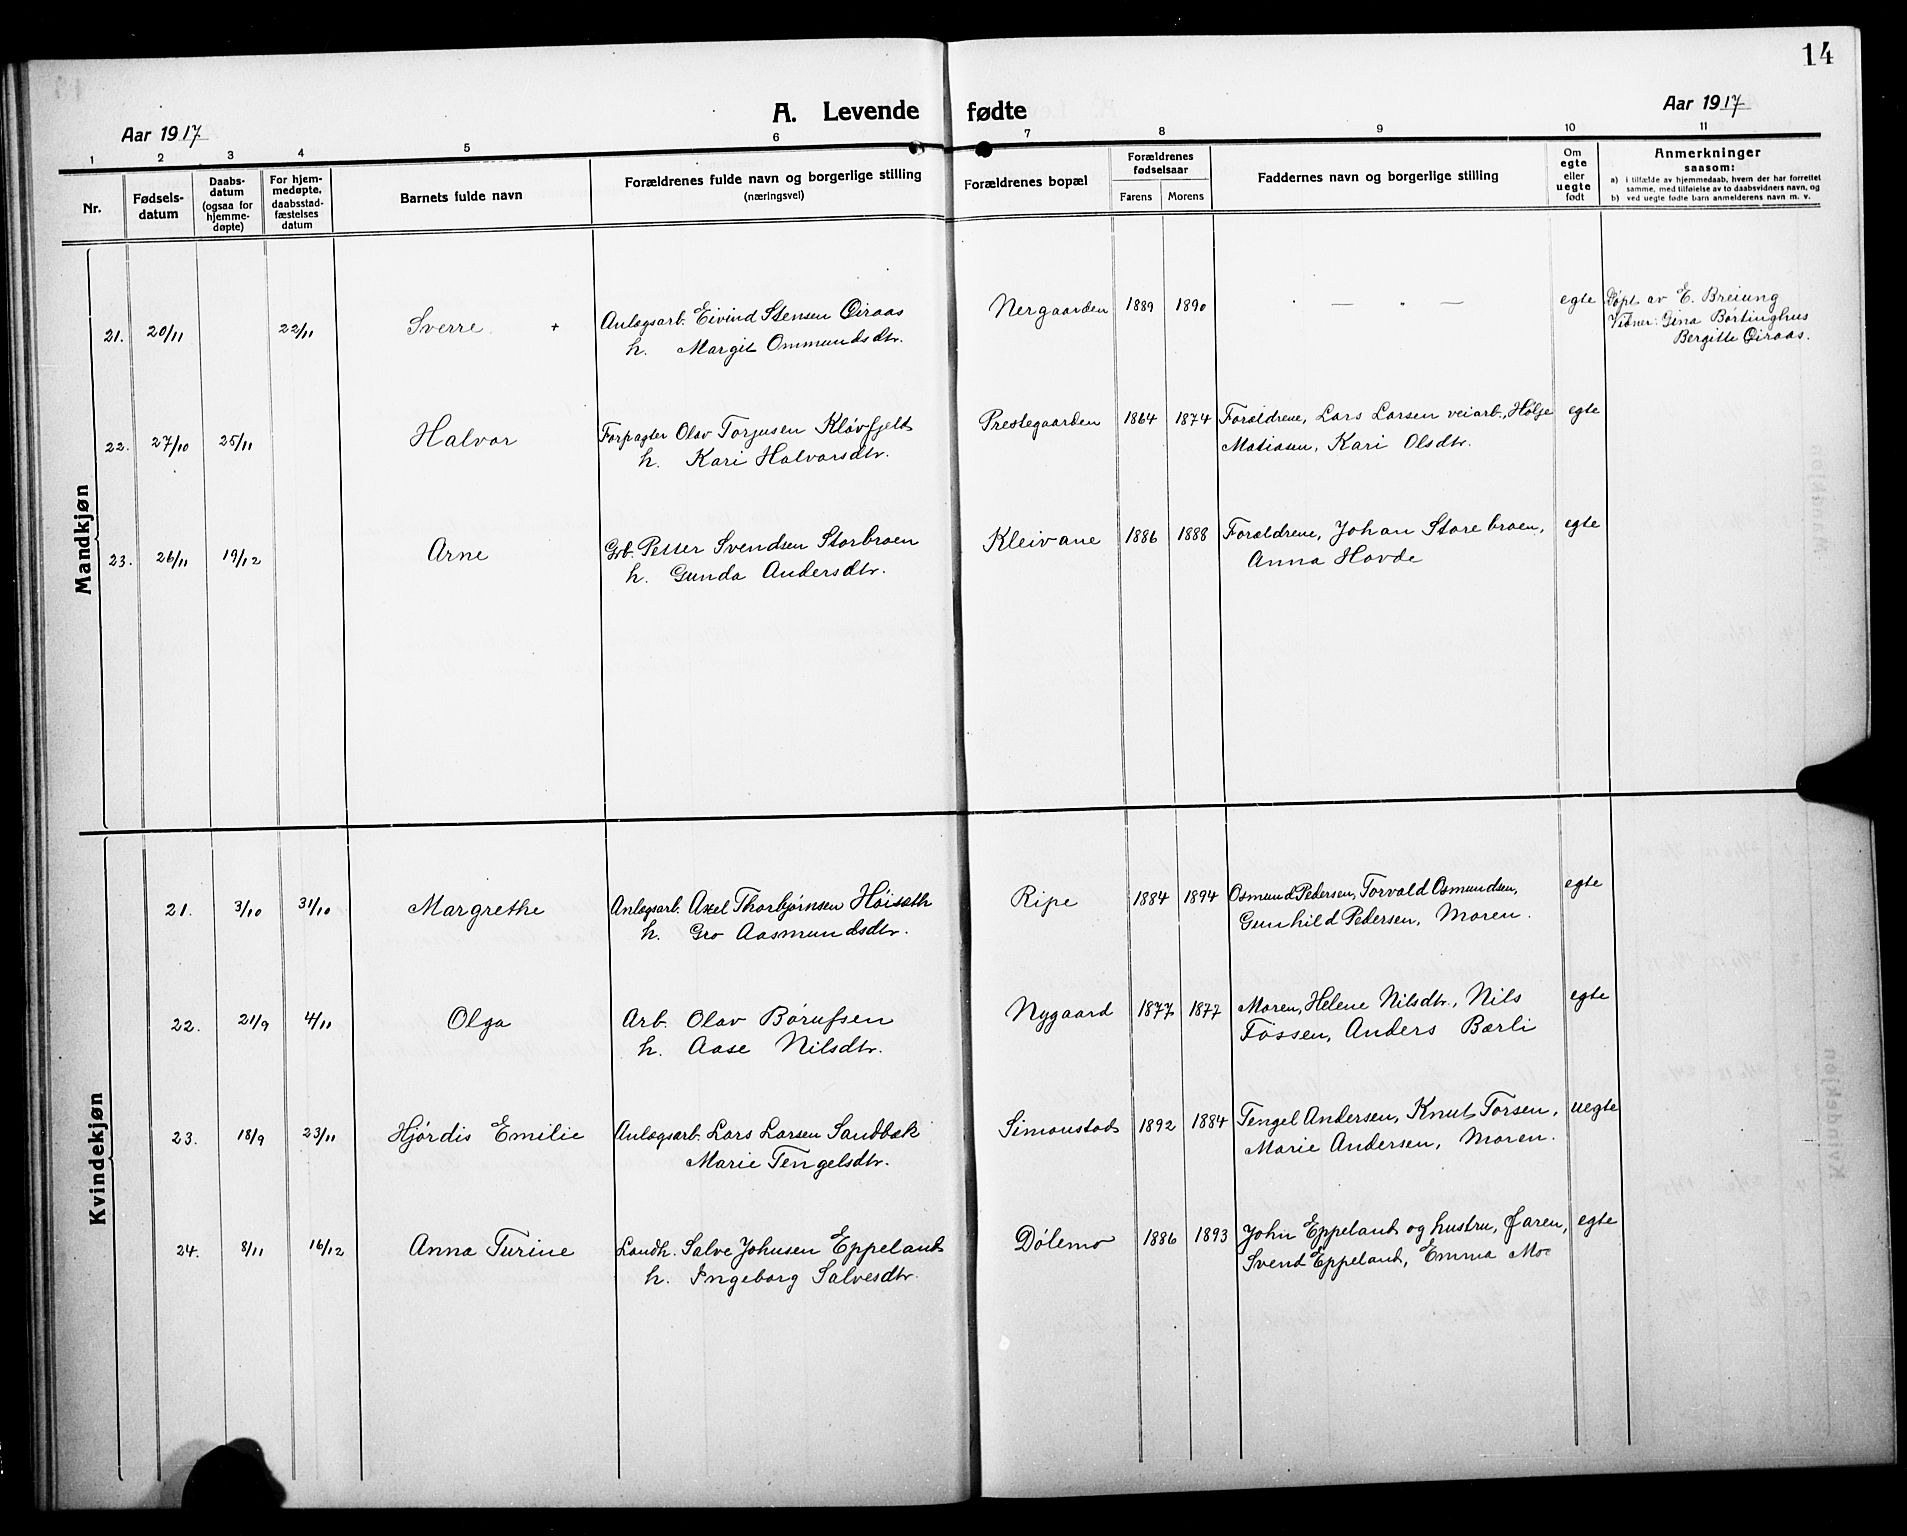 14
A. Levende fødte
Aar 1917
Aar 1917
1 2 3 4 5 6 7 8 9 10 11
Nr.
Fødsels-
datum
Daabs-
datum
(ogsaa for
hjemme-
døpte)
For hjem-
medøpte,
daabsstad-
fæstelses
datum
Barnets fulde navn
Forældrenes fulde navn og borgerlige stilling
(næringsvei)
Forældrenes bopæl
Forældrenes
fødselsaar
Farens Morens
Faddernes navn og borgerlige stilling
Om
egte
eller
uegte
født
Anmerkninger
saasom:
a) i tilfælde av hjemmedaab, hvem der har forrettet
samme, med tilføielse av to daabsvidners navn, og
b) ved uegte fødte barn anmelderens navn m. v.
Mandkjøn
21. 20/11 22/11 Sverre + Anlægsarb. Eivind Stensen Øiraas Nergaarden 1889 1890 " — " — egte Døpt av E. Breiung
h. Margit Ommundsdtr. Vidner: Gina Børtinghus
Bergitte Øiraas.
22. 27/10 25/11 Halvor Forpagter Olav Torjusen Kløvfjeld Prestegaarden 1864 1874 Forældrene, Lars Larsen veiarb., Hølje egte
h. Kari Halvorsdtr. Matiasen, Kari Olsdtr.
23. 26/11 19/12 Arne Grb. Petter Svendsen Storbroen Kleivane 1886 1888 Forældrene, Johan Storebroen, egte
h. Gunda Andersdtr. Anna Hovde
Kvindekjøn
21. 3/10 31/10 Margrethe Anlægsarb. Axel Thorbjørnsen Høisæth Ripe 1884 1894 Osmund Pedersen, Torvald Osmundsen, egte
h. Gro Aasmundsdtr. Gunhild Pedersen, Moren.
22. 21/9 4/11 Olga Arb. Olav Børufsen Nygaard 1877 1877 Moren, Helene Nilsdtr., Nils egte
h. Aase Nilsdtr. Fossen, Anders Bærli
23. 18/9 23/11 Hjørdis Emilie Anlægsarb. Lars Larsen Sandbæk Simonstad 1892 1884 Tengel Andersen, Knut Torsen, uegte
Marie Tengelsdtr. Marie Andersen, Moren.
24. 8/11 16/12 Anna Turine Landh. Salve Johnsen Eppeland Dølemo 1886 1893 John Eppeland og hustru, Faren, egte
h. Ingeborg Salvesdtr. Svend Eppeland, Emma Mo